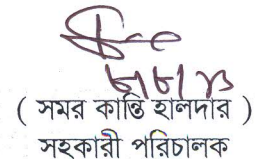 ( সমর কান্তি হালদার )
সহকারী পরিচালক